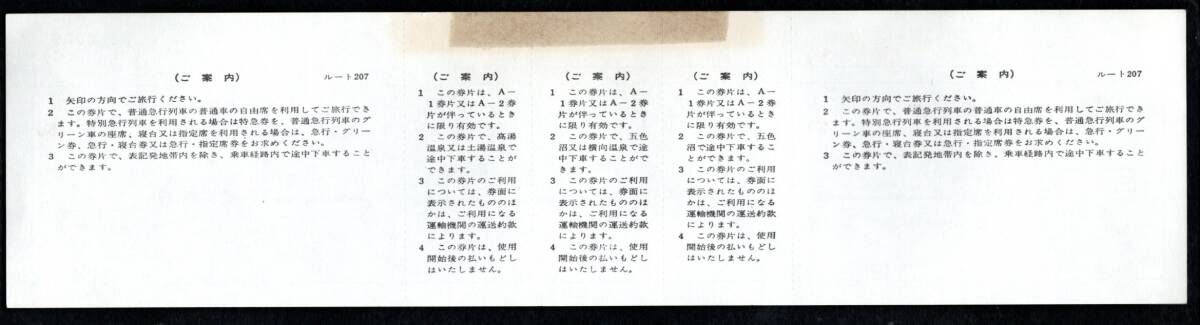 （ご案内）　ルート207
1　矢印の方向でご旅行ください。
2　この券片で、普通急行列車の普通車の自由席を利用してご旅行でき
ます。特別急行列車を利用される場合は特急券を、普通急行列車のグ
リーン車の座席、寝台又は指定席を利用される場合は、急行・グリー
ン券、急行・寝台券又は急行・指定席券をお求めください。
3　この券片で、表記発地帯内を除き、乗車経路内で途中下車すること
ができます。
（ご案内）
1　この券片は、A－
1券片又はA－2券
片が伴っているとき
に限り有効です。
2　この券片で、高湯
温泉又は土湯温泉で
途中下車することが
できます。
3　この券片のご利用
については、券面に
表示されたもののほ
かは、ご利用になる
運輸機関の運送約款
によります。
4　この券片は、使用
開始後の払いもどし
はいたしません。
（ご案内）
1　この券片は、A－
1券片又はA－2券
片が伴っているとき
に限り有効です。
2　この券片で、五色
沼又は横向温泉で途
中下車することがで
きます。
3　この券片のご利用
については、券面に
表示されたもののほ
かは、ご利用になる
運輸機関の運送約款
によります。
4　この券片は、使用
開始後の払いもどし
はいたしません。
（ご案内）
1　この券片は、A－
1券片又はA－2券
片が伴っているとき
に限り有効です。
2　この券片で、五色
沼で途中下車するこ
とができます。
3　この券片のご利用
については、券面に
表示されたもののほ
かは、ご利用になる
運輸機関の運送約款
によります。
4　この券片は、使用
開始後の払いもどし
はいたしません。
（ご案内）　ルート207
1　矢印の方向でご旅行ください。
2　この券片で、普通急行列車の普通車の自由席を利用してご旅行でき
ます。特別急行列車を利用される場合は特急券を、普通急行列車のグ
リーン車の座席、寝台又は指定席を利用される場合は、急行・グリー
ン券、急行・寝台券又は急行・指定席券をお求めください。
3　この券片で、表記発地帯内を除き、乗車経路内で途中下車すること
ができます。